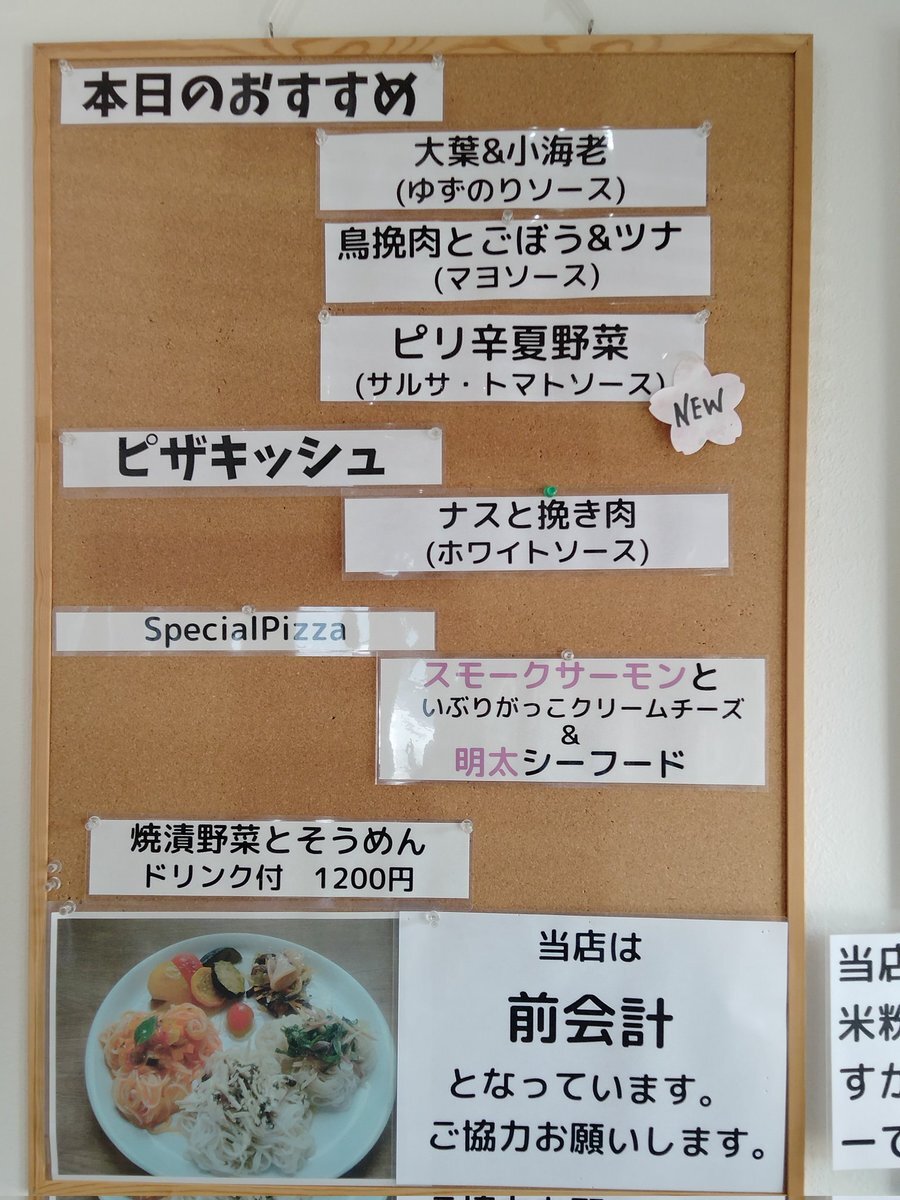 本日のおすすめ
大葉&小海老
(ゆずのりソース)
鳥挽肉とごぼう&ツナ
(マヨソース)
ピリ辛夏野菜
(サルサ・トマトソース)
NEW
ピザキッシュ
ナスと挽き肉
(ホワイトソース)
SpecialPizza
スモークサーモンと
いぶりがっこクリームチーズ
&
明太シーフード
焼漬野菜とそうめん
ドリンク付 1200円
当店は
前会計
となっています。
ご協力お願いします。
当店
米粉
すか
ーで